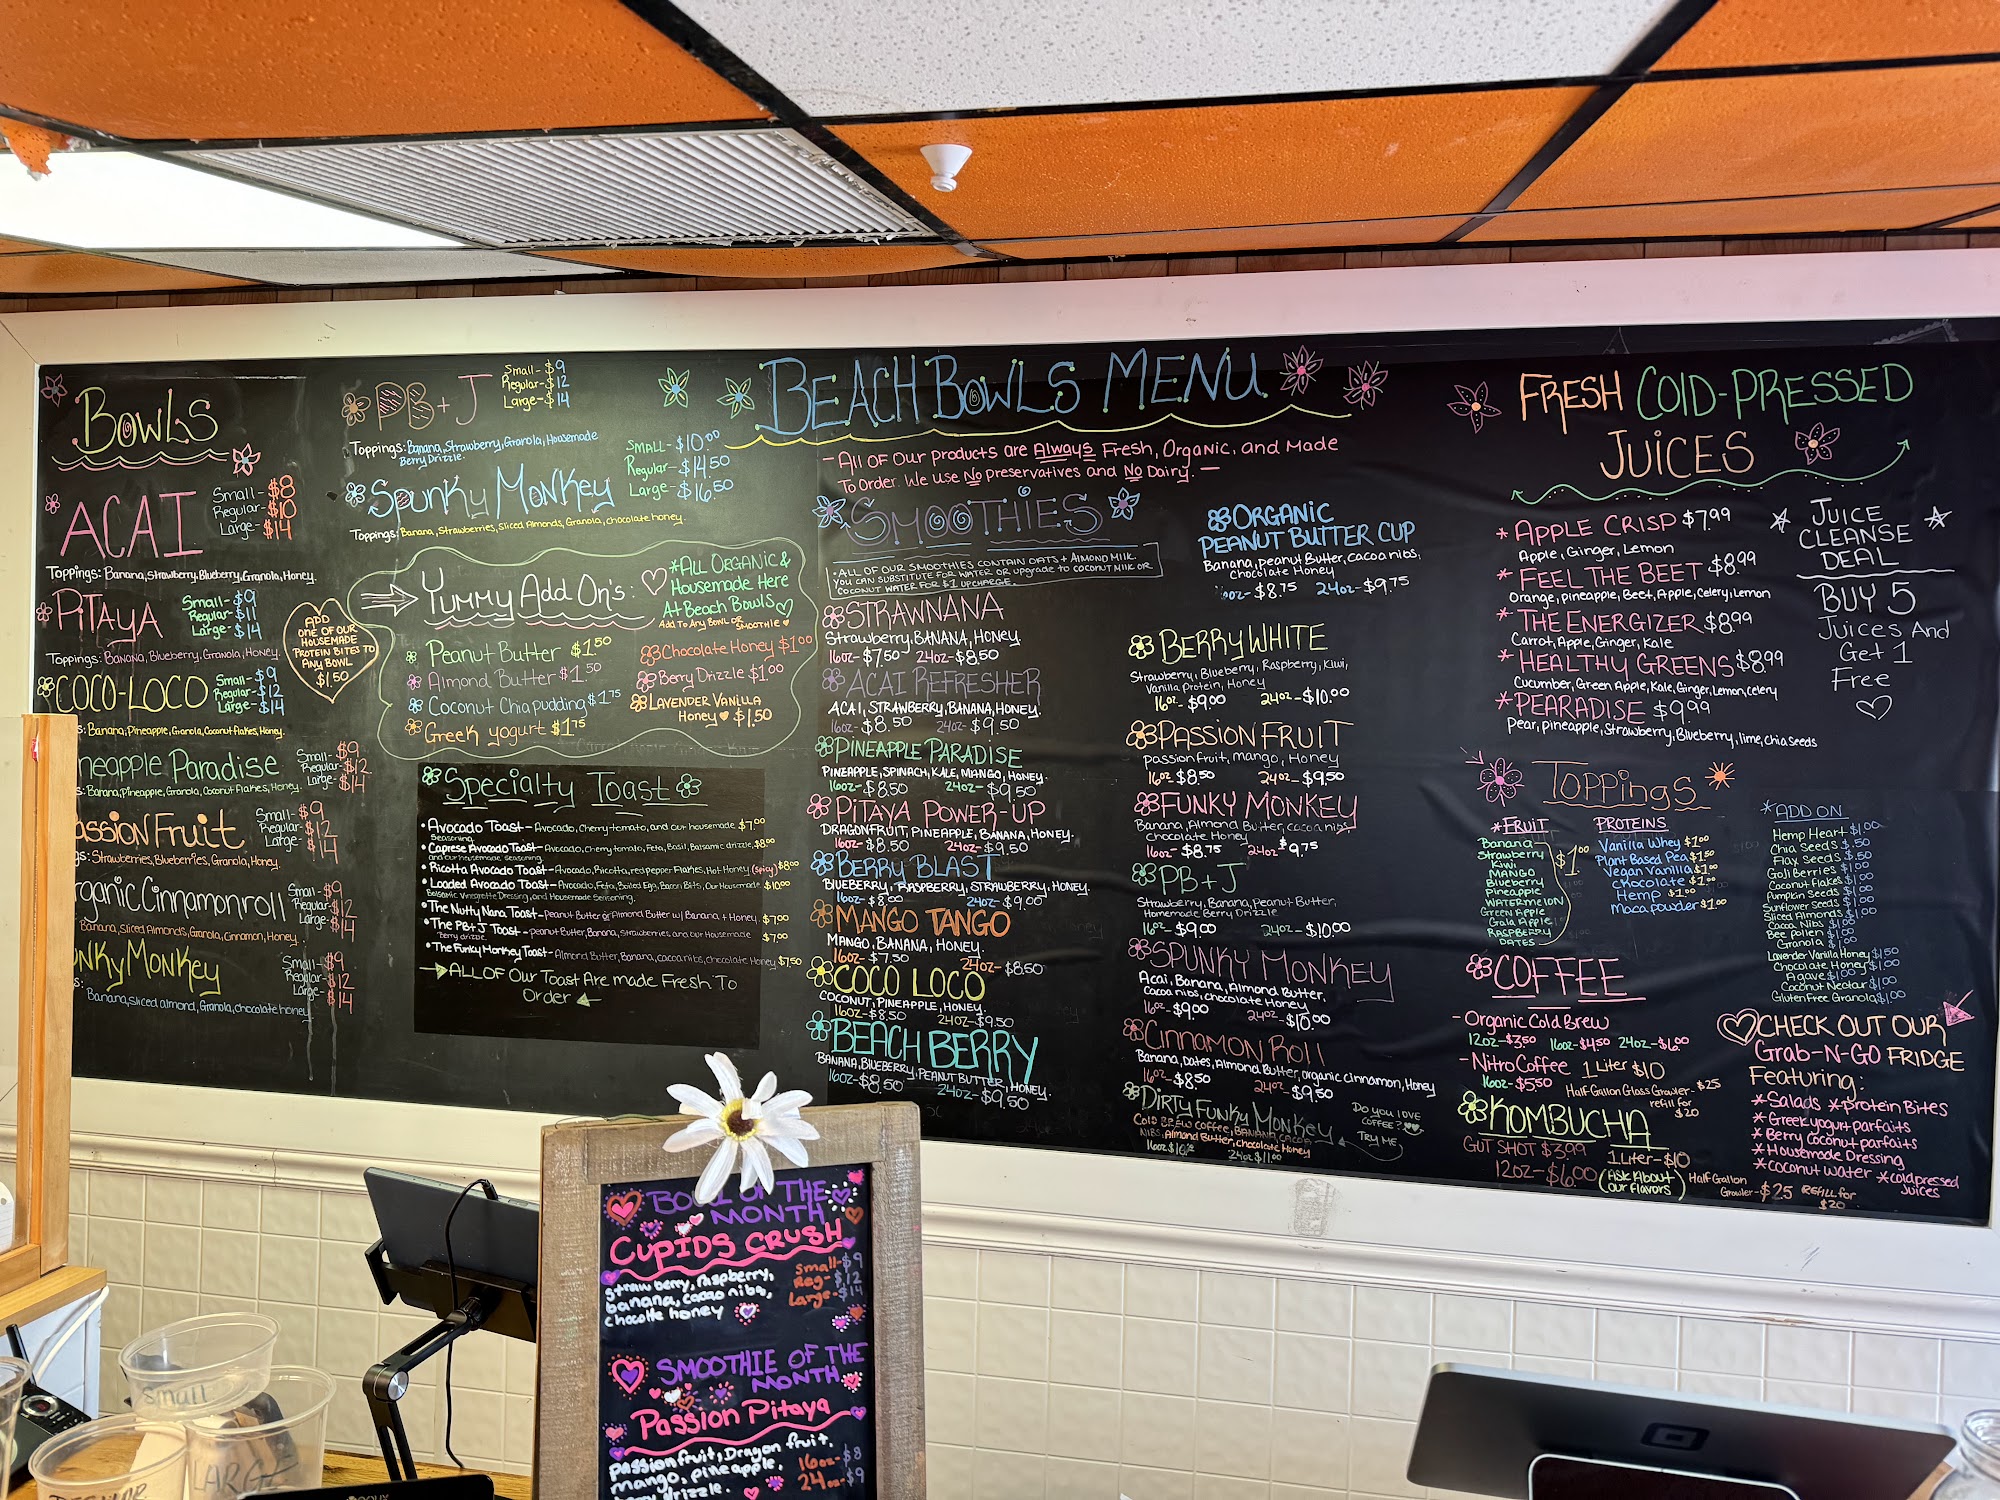 BOWLS
ACAI
Small - $8
Regular - $10
Large - $14
Toppings: Banana, Strawberry, Blueberry, Granola, Honey.
PiTAYA
Small - $9
Regular - $11
Large - $14
Toppings: BANANA, Blueberry, Granola, Honey.
COCO-LOCO
Small - $9
Regular - $12
Large - $14
s: Banana, Pineapple, Granola, Coconut flakes, Honey.
neapple Paradise
Small - $9
Regular - $12
Large - $14
s: Banana, Pineapple, Granola, Coconut Flakes, Honey.
assion Fruit
Small - $9
Regular - $12
Large - $14
gs: Strawberries, Blueberries, Granola, Honey
rganic Cinnamonroll
Small - $9
Regular - $12
Large - $14
Banana, Sliced Almonds, Granola, Cinnamon, Honey
unky Monkey
Small - $9
Regular - $12
Large - $14
s: Banana, Sliced almond, Granola, chocolate honey
ADD
ONE OF OUR
HOUSEMADE
PROTEIN BITES TO
ANY BOWL
$1.50
PB + J
Small - $9
Regular - $12
Large - $14
Toppings: Banana, Strawberry, Granola, Housemade
Berry Drizzle.
Spunky Monkey
SMALL - $10.00
Regular - $14.50
Large - $16.50
Toppings: Banana, Strawberries, Sliced Almonds, Granola, chocolate honey.
Yummy Add On's:
*ALL ORGANIC &
Housemade Here
At Beach Bowls
Add To Any BOWL OR SMOOTHIE
Peanut Butter $1.50
Almond Butter $1.50
Coconut Chia pudding $1.75
Greek yogurt $1.75
Chocolate Honey $1.00
Berry Drizzle $1.00
LAVENDER VANILLA
Honey $1.50
Specialty Toast
• Avocado Toast - Avocado, Cherry tomato, and our housemade $7.00
Seasoning
• Caprese Avocado Toast - Avocado, cherry tomato, Feta, Basil, Balsamic drizzle, $8.00
and our housemade Seasoning.
• Ricotta Avocado Toast - Avocado, Ricotta, red pepper Flakes, Hot Honey (spicy) $8.00
• Loaded Avocado Toast - Avocado, Feta, Boiled Egg, Bacon Bits, Our Housemade $10.00
balsamic Vinegrette Dressing, and Housemade Seasoning.
• The Nutty Nana Toast - Peanut Butter or Almond Butter w/ Banana + Honey. $7.00
• The PB+J Toast - peanut Butter, Banana, strawberries, and our Housemade
Berry drizzle. $7.00
• The Funky Monkey Toast - Almond Butter, Banana, cacao nibs, Chocolate Honey $7.50
ALL OF Our Toast Are made Fresh To
Order
BEACH BOWLS MENU
- All OF Our Products are Always Fresh, Organic, and Made
To Order. We use No preservatives and No Dairy. -
SMOOTHIES
- ALL OF OUR SMOOTHIES CONTAIN OATS + ALMOND MILK.
YOU CAN SUBSTITUTE FOR WATER OR upgrade to COCONUT MILK OR
COCONUT WATER FOR $1 UPCHARGE.
STRAWNANA
Strawberry, BANANA, HONEY.
16oz - $7.50 24oz - $8.50
ACAI REFRESHER
ACAI, STRAWBERRY, BANANA, HONEY.
16oz - $8.50 24oz - $9.50
PINEAPPLE PARADISE
PINEAPPLE, SPINACH, KALE, MANGO, HONEY.
16oz - $8.50 24oz - $9.50
PiTAYA POWER-UP
DRAGONFRUIT, PINEAPPLE, BANANA, HONEY.
16oz - $8.50 24oz - $9.50
BERRY BLAST
BLUEBERRY, RASPBERRY, STRAWBERRY, HONEY.
16oz - $8.00 24oz - $9.00
MANGO TANGO
MANGO, BANANA, HONEY.
16oz - $7.50 24oz - $8.50
COCO LOCO
COCONUT, PINEAPPLE, HONEY.
16oz - $8.50 24oz - $9.50
BEACH BERRY
BANANA, BLUEBERRY, PEANUT BUTTER, HONEY.
16oz - $8.50 24oz - $9.50
ORGANIC
PEANUT BUTTER CUP
Banana, peanut Butter, cacao nibs,
Chocolate Honey
oz - $8.75 24oz - $9.75
BERRY WHITE
Strawberry, Blueberry, Raspberry, Kiwi,
Vanilla Protein, Honey
16oz - $9.00 24oz - $10.00
PASSION FRUIT
passion fruit, mango, Honey
16oz $8.50 24oz - $9.50
FUNKY MONKEY
Banana, Almond Butter, cacao nibs,
Chocolate Honey
16oz - $8.75 24oz $9.75
PB + J
Strawberry, Banana, Peanut Butter,
Homemade Berry Drizzle
16oz - $9.00 24oz - $10.00
SPUNKY MONKEY
Acai, Banana, Almond Butter,
Cacao nibs, chocolate Honey
16oz - $9.00 24oz - $10.00
CINNAMON ROLL
Banana, Dates, Almond Butter, organic cinnamon, Honey
16oz $8.50 24oz - $9.50
DIRTY FUNKY MONKEY
COLD BREW COFFEE, BANANA, CACAO
NIBS, Almond Butter, chocolate Honey
24oz $11.00
Do you love
COFFEE?
TRY ME
FRESH COLD-PRESSED
JUICES
* APPLE CRISP $7.99
Apple, Ginger, Lemon
* FEEL THE BEET $8.99
Orange, pineapple, Beet, Apple, Celery, Lemon
* THE ENERGIZER $8.99
Carrot, Apple, Ginger, Kale
* HEALTHY GREENS $8.99
Cucumber, Green Apple, Kale, Ginger, Lemon, Celery
* PEARADISE $9.99
Pear, pineapple, Strawberry, Blueberry, lime, chia seeds
JUICE
CLEANSE
DEAL
BUY 5
Juices And
Get 1
Free
TOPPINGS
*FRUIT
Banana
Strawberry
Kiwi
MANGO
Blueberry
Pineapple
WATERMELON
Green Apple
Gala Apple
RASPBERRY
DATES
$1.00
PROTEINS
Vanilla Whey $1.00
Plant Based Pea $1.50
Vegan Vanilla $1.00
chocolate $1.00
Hemp $1.00
Maca powder $1.00
*ADD ON
Hemp Heart $1.00
Chia Seeds $.50
Flax Seeds $.50
Goji Berries $1.00
Coconut Flakes $1.00
Pumpkin Seeds $1.00
Sunflower Seeds $1.00
Sliced Almonds $1.00
Cacao Nibs $1.00
Bee Pollen $1.00
Granola $1.00
Lavender Vanilla Honey $1.50
Chocolate Honey $1.00
Agave $1.00
Coconut Nectar $1.00
Gluten Free Granola $1.00
COFFEE
- Organic Cold Brew
12oz - $3.50 16oz - $4.50 24oz - $6.00
- Nitro Coffee 1 Liter $10
16oz - $5.50 Half Gallon Glass Growler - $25
refill for
$20
KOMBUCHA
GUT SHOT $3.99 1 Liter - $10
12oz - $6.00 (Ask About
our flavors)
Half Gallon
Growler - $25 REFILL for
$20
CHECK OUT OUR
Grab-N-GO FRIDGE
Featuring:
*Salads *Protein Bites
*Greek yogurt parfaits
*Berry Coconut parfaits
*Housemade Dressing
*coconut water *coldpressed
Juices
BOWL OF THE
MONTH
CUPIDS CRUSH
Small - $9
Reg - $12
Large - $14
strawberry, raspberry,
banana, cacao nibs,
chocolte honey
SMOOTHIE OF THE
MONTH
Passion Pitaya
passionfruit, Dragon fruit,
mango, pineapple,
berry drizzle.
16oz - $8
24oz - $9
small
LARGE